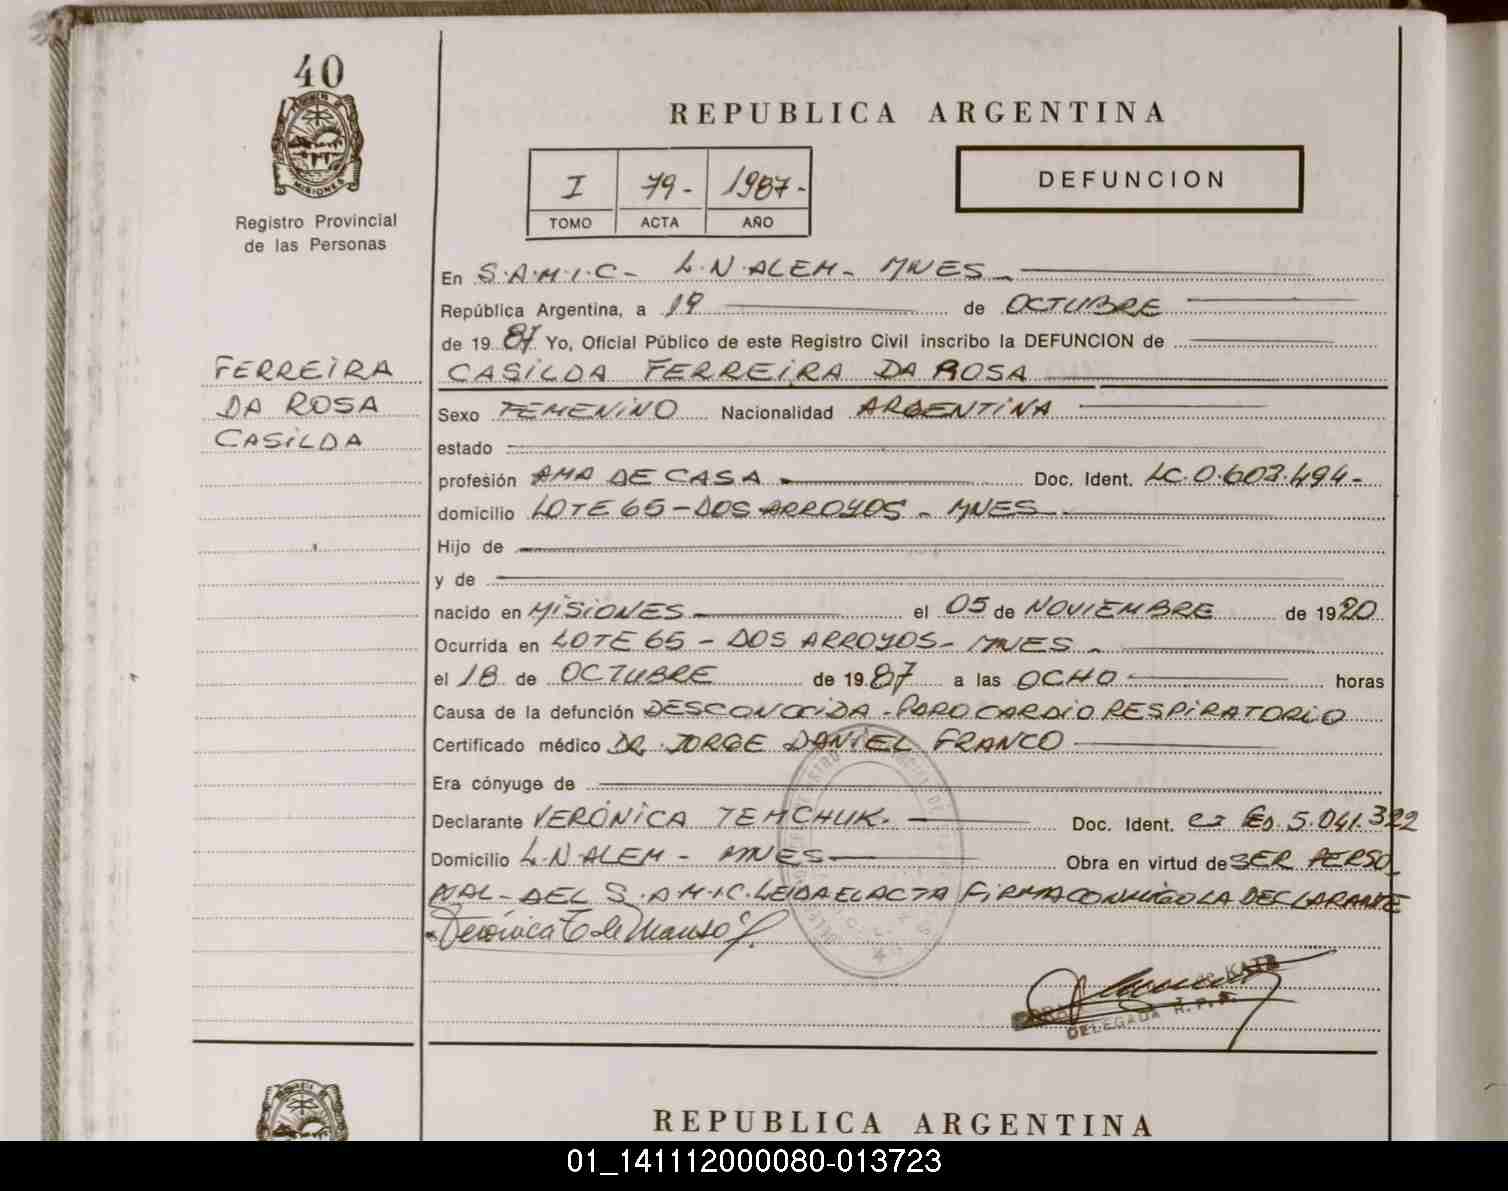 40
MISIONES
Registro Provincial
de las Personas
REPUBLICA ARGENTINA
I 79- 1987-
TOMO ACTA AÑO
DEFUNCION
En S.A.M.I.C- L.N.ALEM- MNES-
República Argentina, a 19 de OCTUBRE
de 19 87 Yo, Oficial Público de este Registro Civil inscribo la DEFUNCION de
CASILDA FERREIRA DA ROSA
FERREIRA
DA ROSA
CASILDA
Sexo FEMENINO Nacionalidad ARGENTINA
estado
profesión AMA DE CASA Doc. Ident. LC.0.603.494-
domicilio LOTE 65-DOS ARROYOS- MNES-
Hijo de
y de
nacido en MISIONES el 05 de NOVIEMBRE de 1920
Ocurrida en LOTE 65- DOS ARROYOS- MNES-
el 18 de OCTUBRE de 19 87 a las OCHO horas
Causa de la defunción DESCONOCIDA-PARO CARDIO RESPIRATORIO
Certificado médico DR. JORGE DANIEL FRANCO
Era cónyuge de
Declarante VERÓNICA TEMCHUK. Doc. Ident. 5.041.322
Domicilio L.N.ALEM- MNES Obra en virtud de SER PERSO
NAL- DEL S.A.M.I.C. LEIDA EL ACTA FIRMA CONMIGO LA DECLARANTE
Verónica T de Manso
de KATZ
DELEGADA R.P.P.
REPUBLICA ARGENTINA
01_141112000080-013723